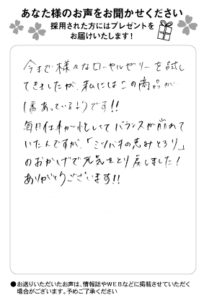 あなた様のお声をお聞かせください
採用された方にはプレゼントを
お届けいたします!
今まで様々なローヤルゼリーを試し
てきましたが、私にはこの商品が
1番あっている(ようです)!!
毎日仕事が忙しくてバランスが崩れて
いたんですが、「ミツバチの恵みとろり」
のおかげで元気をとり戻しました!
ありがとうございます!!
●お送りいただいたお声は、情報誌やWEBなどに掲載させていただく
場合がございます。予めご了承ください